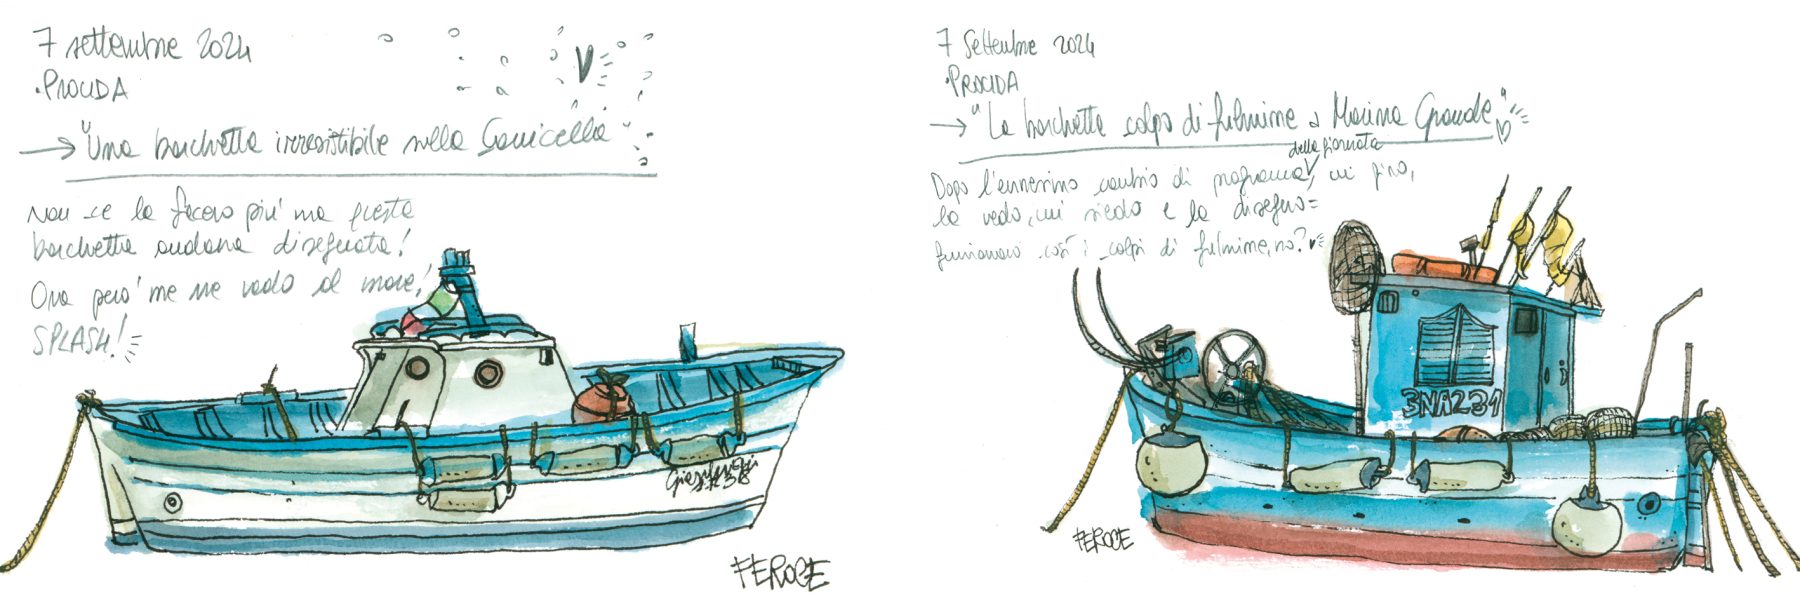 7 settembre 2024
·PROCIDA
→ "Una barchetta irresistibile nella Corricella"
Non ce la facevo più ma questa
barchetta andava disegnata!
Ora però me ne vado al mare!
SPLASH!
38
FEROCE
7 Settembre 2024
·PROCIDA
→ "La barchetta colpo di fulmine a Marina Grande"
della giornata
Dopo l'ennesimo cambio di programma, mi giro,
la vedo, mi siedo e la disegno=
funzionano così i colpi di fulmine, no?
3NA231
FEROCE